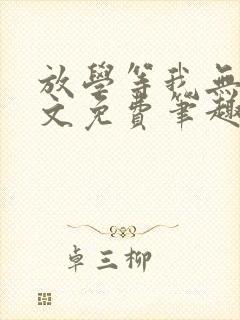 放學等我無
文免費筆趣
卓三柳